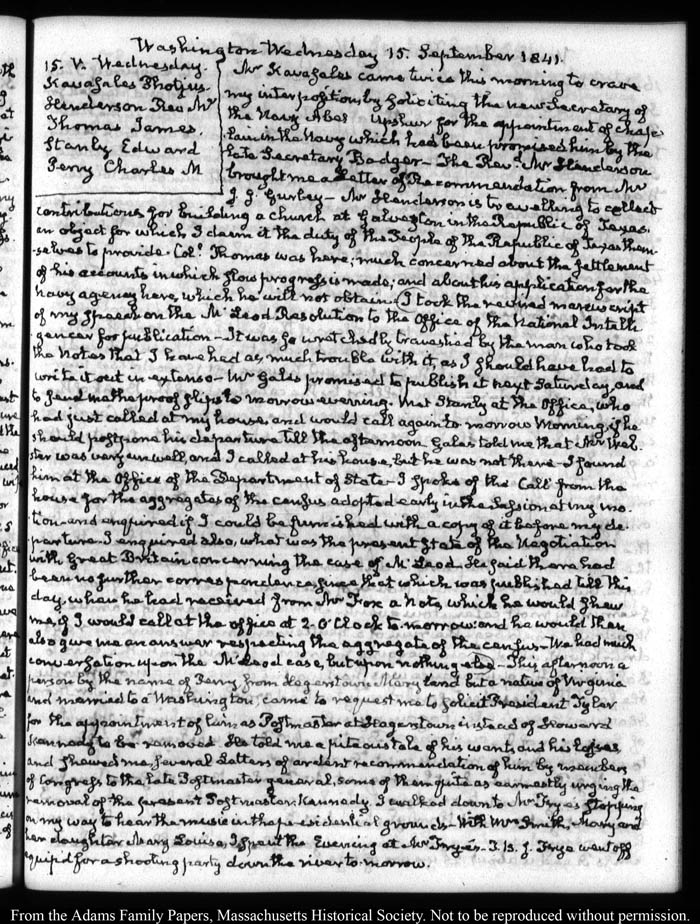 Washington Wednesday 15. September 1841.
15. V. Wednesday.
Kavasales Photius
Henderson Rev. Mr
Thomas James.
Stanly Edward
Perry Charles M
Mr Kavasales came twice this morning to crave
my interposition, by soliciting the new Secretary of
the Navy Abel Upshur for the appointment of Chap-
lain in the Navy which had been promised him by the
late Secretary Badger – The Revd. Mr Henderson
brought me a Letter of Recommendation from Mr
J. J. Gurley – Mr Henderson is travelling to collect
contributions for building a church at Galveston in the Republic of Texas.
an object for which I deem it the duty of the People of the Republic of Texas them-
selves to provide. Coll. Thomas was here; much concerned about the settlement
of his accounts in which slow progress is made, and about his application for the
navy agency here, which he will not obtain. I took the revised manuscript
of my speech on the McLeod Resolution to the Office of the National Intelli-
gencer for publication – It was so wretchedly travestied by the man who took
the Notes that I have had as much trouble with it, as I should have had to
write it out in extenso – Mr Gales promised to publish it next Saturday, and
to send me the proof slips to morrow evening. Met Stanly at the Office, who
had just called at my house, and would call again to morrow Morning, if he
should postpone his departure till the afternoon. Gales told me that Mr Web-
ster was very unwell, and I called at his house, but he was not there – I found
him at the Office of the Department of State – I spoke of the Call from the
house for the aggregates of the census adopted early in the Session at my mo-
tion – and enquired if I could be furnished with a copy of it before my de-
parture. I enquired also, what was the present State of the Negotiation
with Great Britain concerning the case of McLeod. He said there had
been no further correspondence, since that which was published till this
day, when he had received from Mr Fox a Note, which he would shew
me, if I would call at the office at 2. O'Clock to-morrow and he would then
also give me an answer respecting the aggregate of the census – We had much
conversation upon the McLeod case, but upon nothing else – This afternoon a
person by the name of Perry from Hagerstown Maryland but a native of Virginia
and married to a Washington, came to request me to solicit President Tyler
for the appointment of him as Postmaster at Hagerstown instead of Howard
Kennedy to be removed. He told me a piteous tale of his wants and his losses,
and shewed me several Letters of ardent recommendation of him by members
of Congress to the late Postmaster general, some of them quite as earnestly urging the
removal of the present Postmaster Kennedy. I walked down to Mr Frye's stopping
on my way to hear the music in the presidential grounds – With Mrs Smith, Mary and
her daughter Mary Louisa, I spent the Evening at Mr Frye's – T. B. J. Frye went off
equip'd for a shooting party down the river to-morrow.
From the Adams Family Papers, Massachusetts Historical Society. Not to be reproduced without permission.